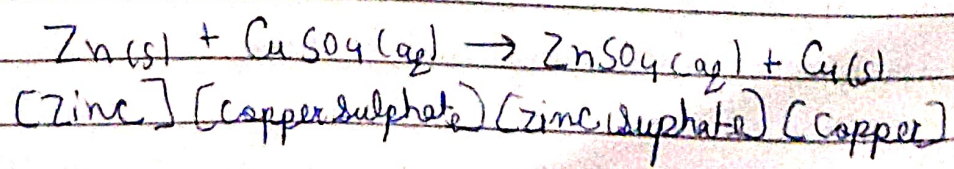 Zn(s) + CuSO4 (aq) → ZnSO4 (aq) + Cu(s)
[Zinc] [Copper Sulphate] [zinc suphate] [Copper]